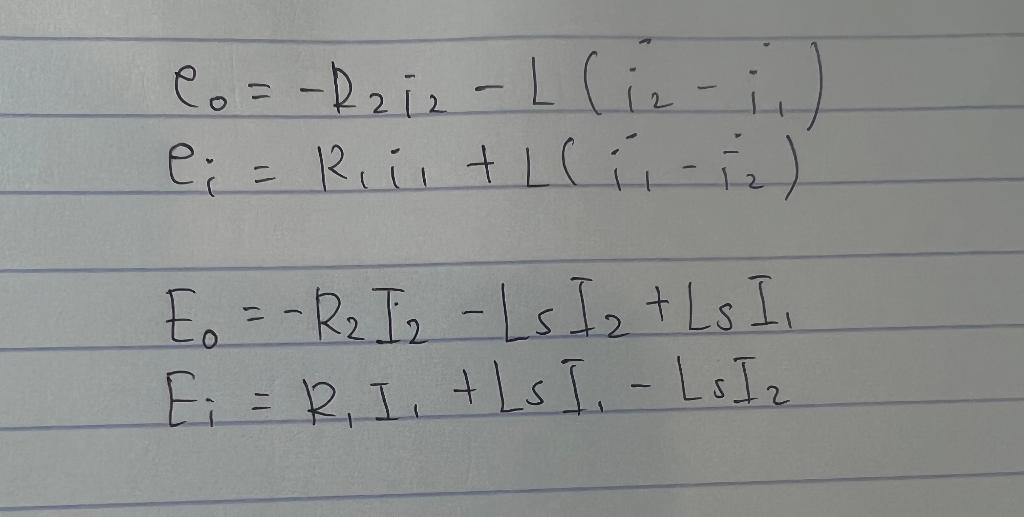 e₀ = -R₂i₂ - L(i̇₂ - i̇₁)
eᵢ = R₁i₁ + L(i̇₁ - i̇₂)
E₀ = -R₂I₂ - LsI₂ + LsI₁
Eᵢ = R₁I₁ + LsI₁ - LsI₂